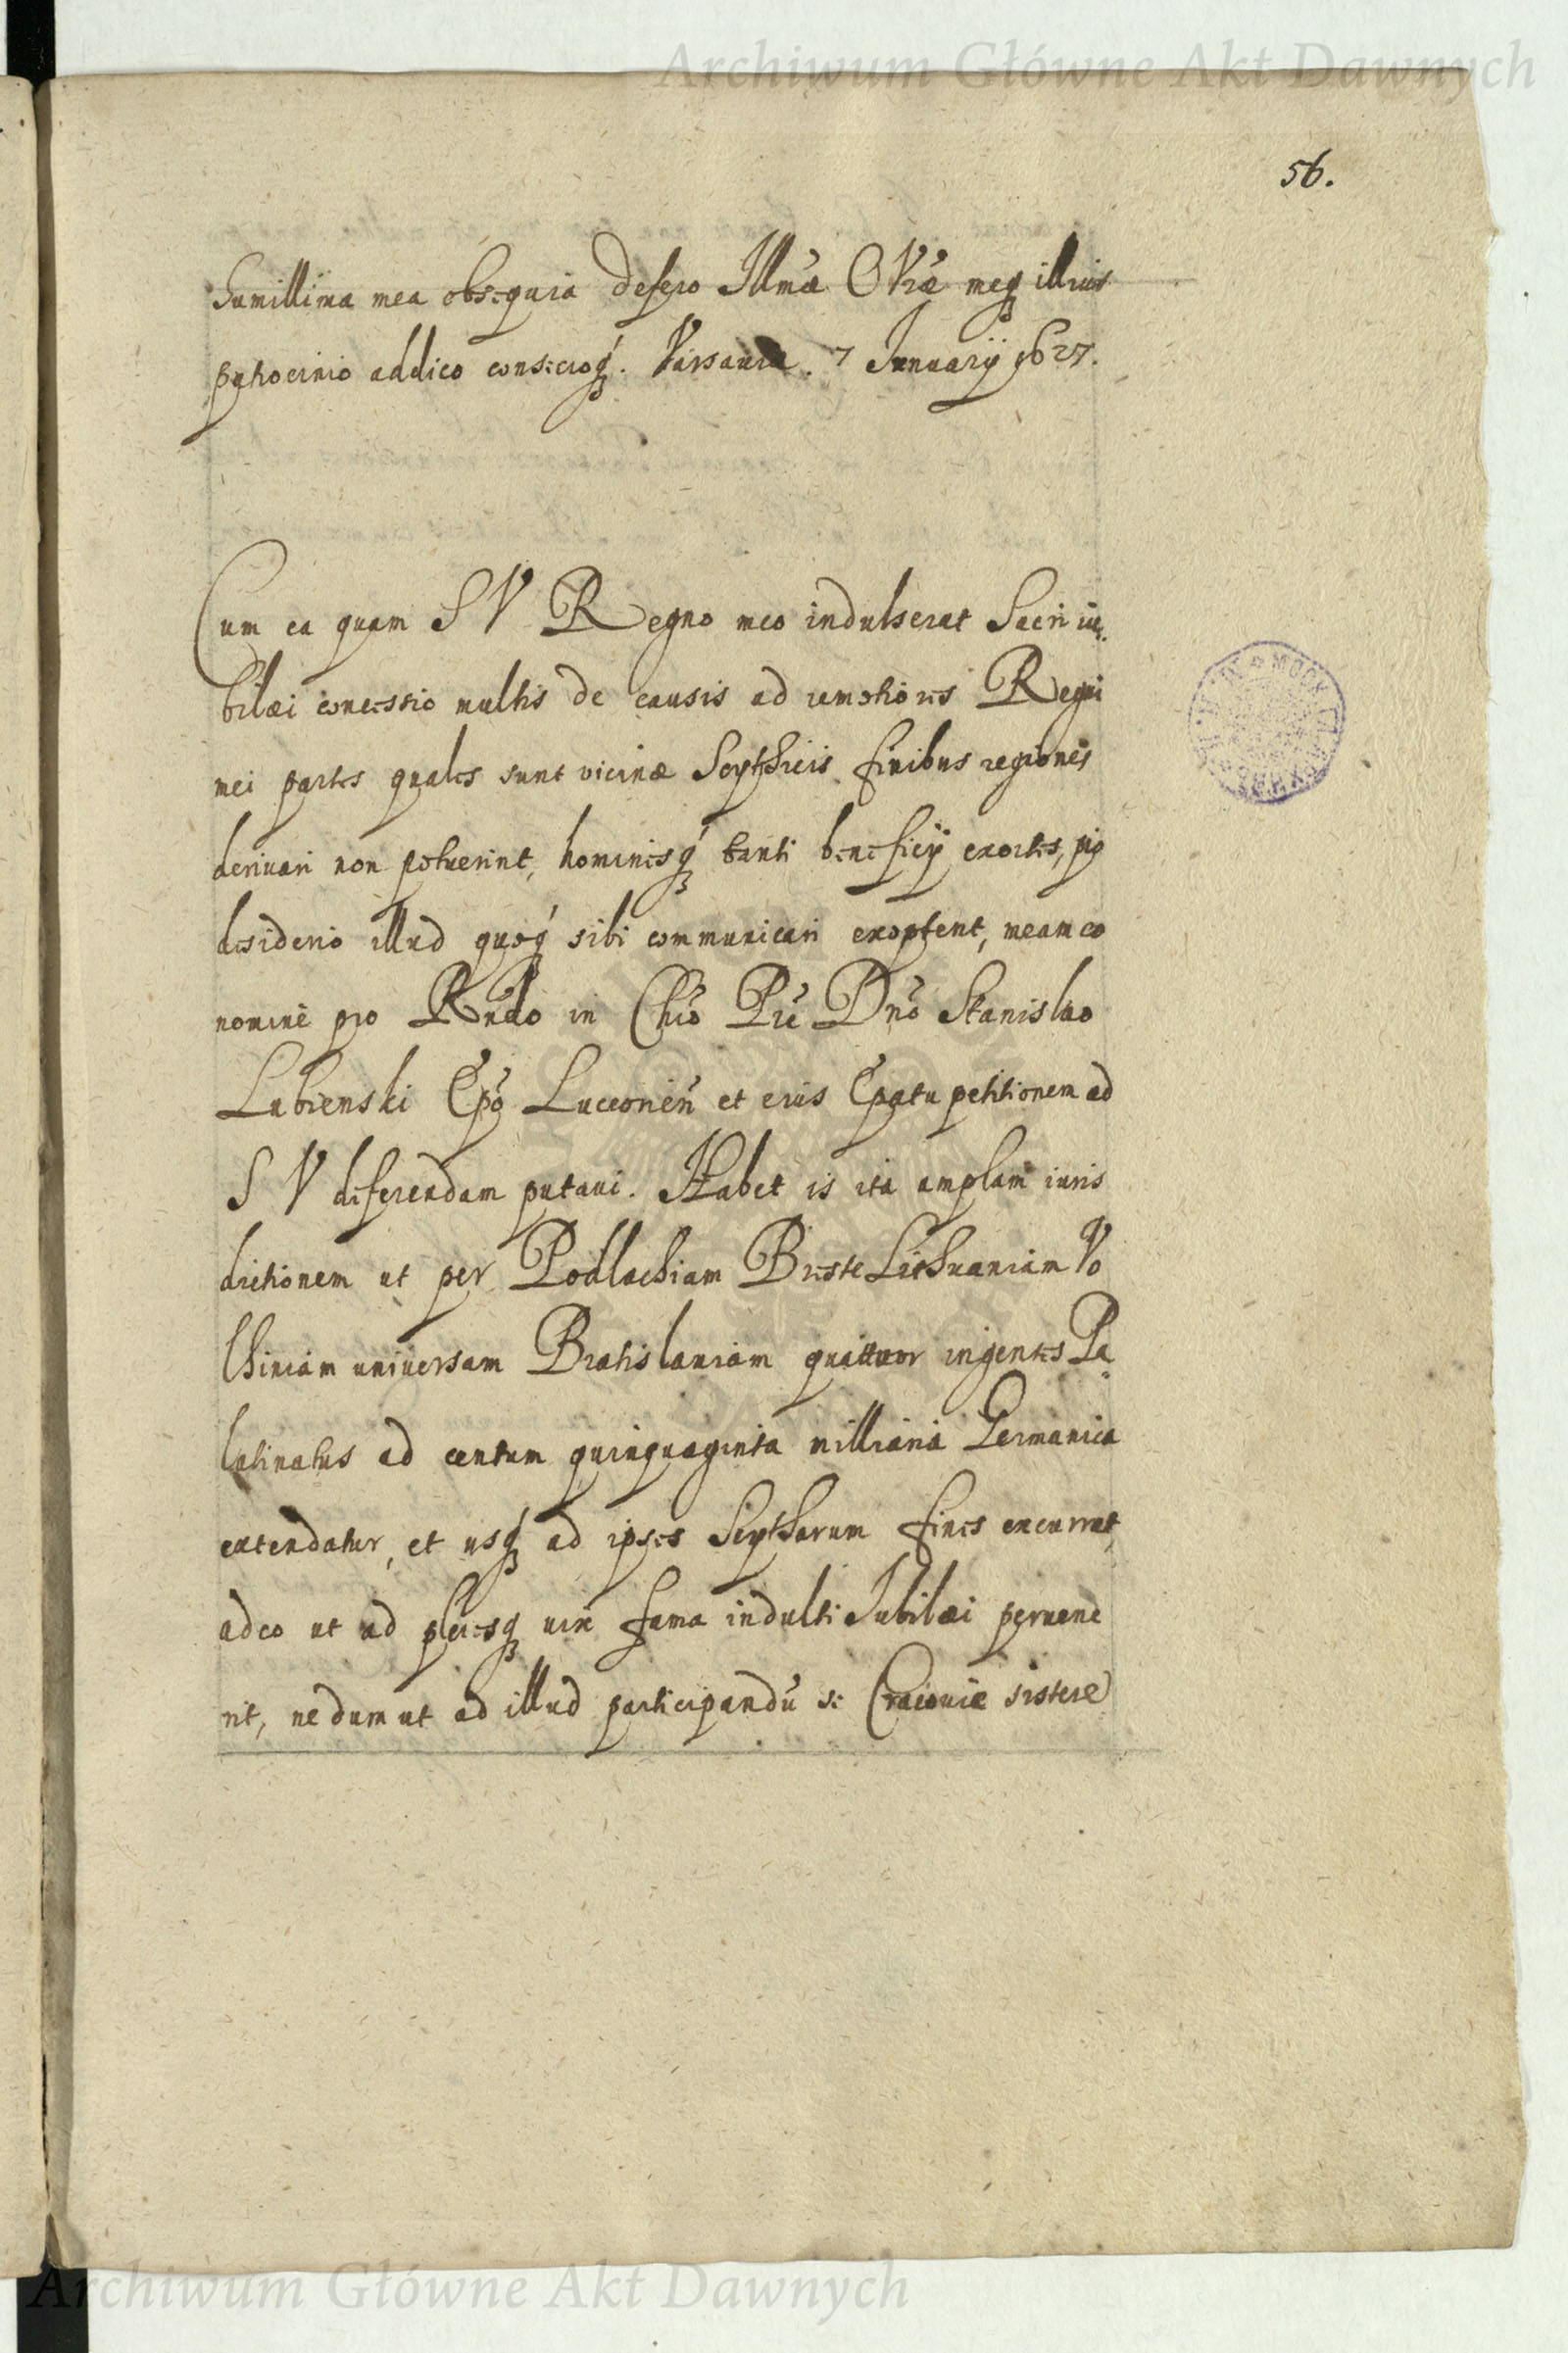 Archiwum Główne Akt Dawnych
56.
Humillima mea obsequia defero Illmæ O Vræ meq́ illius
patrocinio addico consecroq́. Varsaviæ. 7 Januarij 1627.
Cum ea quam S V Regno meo indulserat Sacri iu-
bilæi concessio multis de causis ad remotiores Regni
mei partes quales sunt vicinæ Scythicis finibus regiones
derivari non potuerint, hominesq́ tanti beneficij exortes, pio
desiderio illud quoq́ sibi communicari exoptent, meam eo
nomine pro Rndo in Chro Pre Dno Stanislao
Lubienski Epo Luceorien et eius Epatu petitionem ad
S V deferendam putavi. Habet is ita amplam iuris
dictionem ut per Podlachiam Breste Lithuaniam Vo
lhiniam universam Bratislaviam quattuor ingentes Pa-
latinatus ad centum quinquaginta milliaria Germanica
extendatur, et usq́ ad ipsos Scytharum fines excurrat,
adeo ut ad plerosq́ vix fama indulti Jubilæi pervene
rit, nedum ut ad illud participandū se Cracoviæ sistere
Archiwum Główne Akt Dawnych